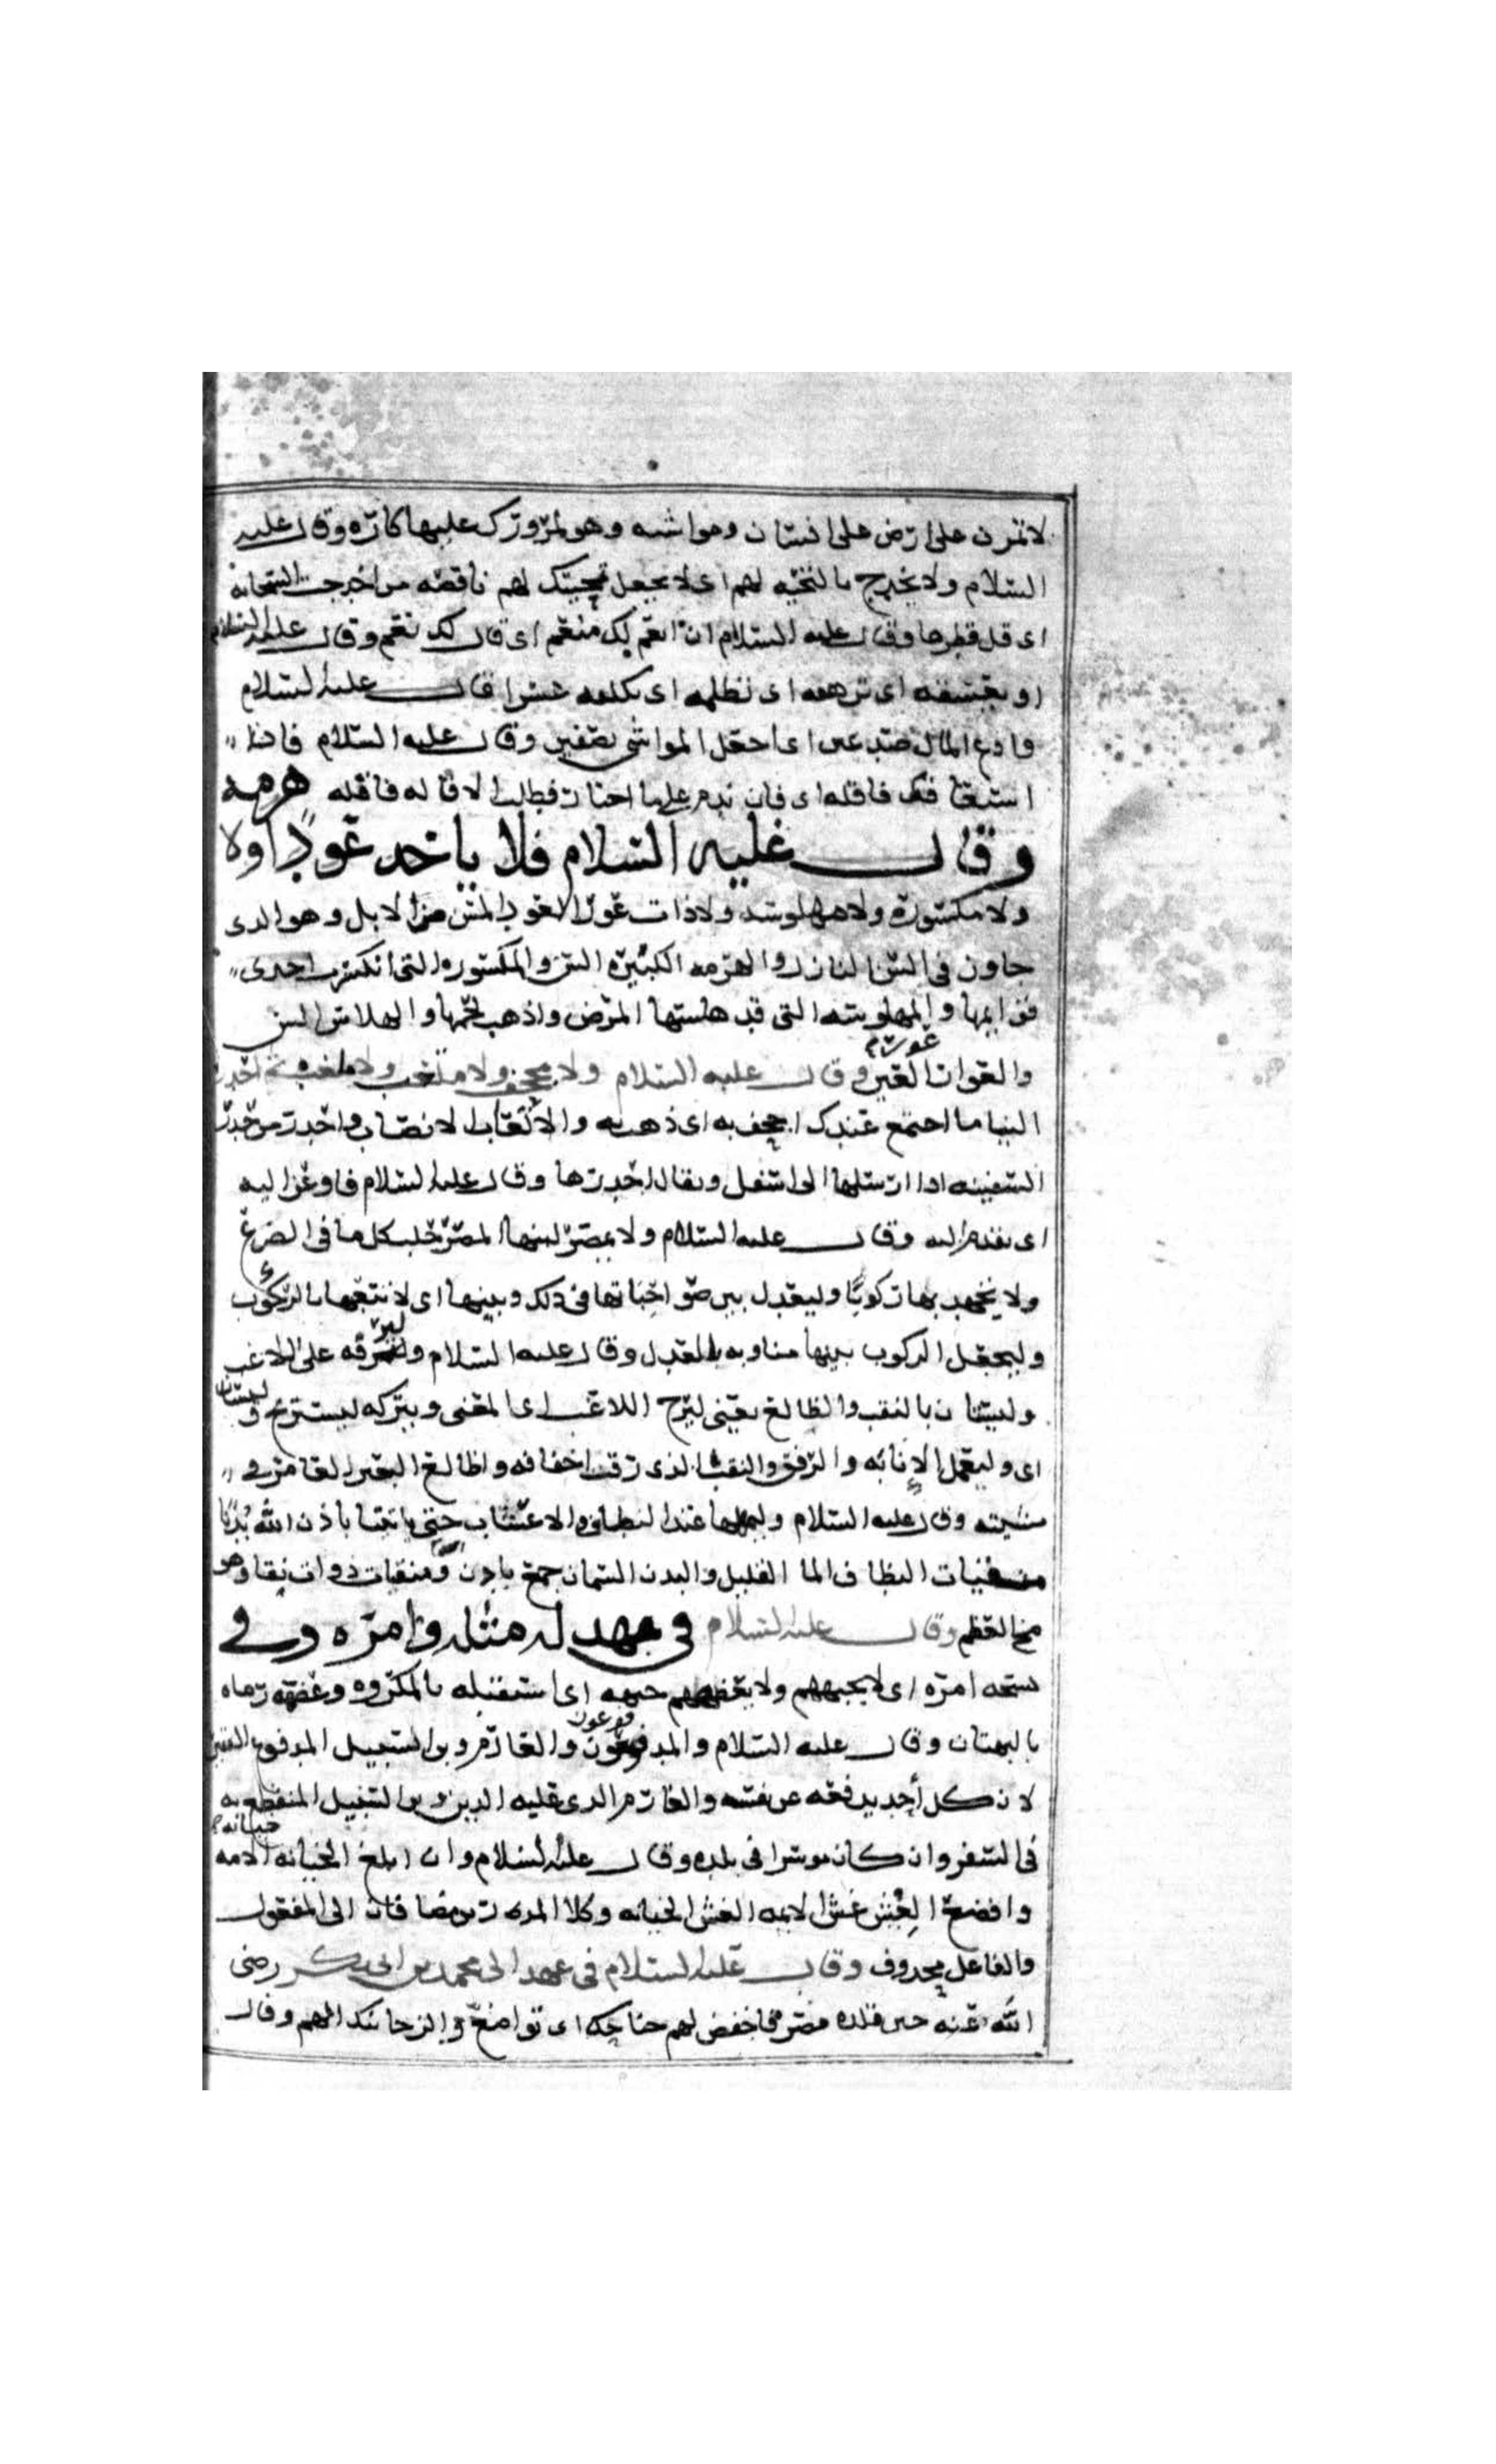 لا تمرن على ارض على انسان ومواشيه وهو لمرورك عليها كاره وقال عليه
السلام ولا يخدج بالتحيه لهم اى لا يجعل تحيتك لهم ناقصه من اخدجت السحابه
اى قل قطرها وقال عليه السلام ان انعم لك منعم اى قال لك نعم وقال عليه السلام
او يعسفه اى ترهقه اى تظلمه اى تكلفه عسرا قال عليه السلام
فادع المال صدعين اى اجعل المواشى نصفين وقال عليه السلام فاذا
استقالك فاقله اى فان ندم على ما اختار فطلب الاقاله فاقله
وقال عليه السلام فلا ياخد عودا ولا هرمه
ولا مكسوره ولا مهلوسه ولا ذات عوار العود المسن من الابل وهو الدى
جاوز فى السن البازل والهرمه الكبيره السن والمكسوره التى انكسرت احدى
قوايمها والمهلوسه التى قد هلسها المرض واذهب لحمها والهلاس السل
والعوار العيب وقال عليه السلام ولا مجحف ولا ملغب ولا متعب ثم احدر
الينا ما اجتمع عندك اجحف به اى ذهب به والاتعاب الانصاب واحدر من حدرت
السفينه اذا ارسلتها الى اسفل ويقال احدرتها وقال عليه السلام فاوعز اليه
اى تقدم اليه وقال عليه السلام ولا يمصر لبنها المصر حلب كل ما فى الضرع
ولا يجهد بها ركوبا وليعدل بين صواحباتها فى ذلك وبينها اى لا يتعبها بالركوب
وليجعل الركوب بينها مناوبه بالعدل وقال عليه السلام وليرفه على اللاغب
وليستان بالنقب والظالع يعنى ليرح اللاغب اى المعنى ويتركه ليستريح وليستان
اى وليعمل الاناه والرفق والنقب الذى رقت اخفافه والظالع البعير الغامز فى
مشيته وقال عليه السلام وليمهلها عند النطاف والاعشاب حتى ياتينا باذن الله بدنا
منقيات النطاف الما القليل والبدن السمان جمع بادن ومنقيات ذوات نقا وهو
مخ العظم وقال عليه السلام فى عهد له مثله وامره وفى
نسخه امره اى لا يجبههم ولا يعضههم جبهه اى استقبله بالمكروه وعضهه رماه
بالبهتان وقال عليه السلام والمدفوعون والغارم وبن السبيل المدفوع الفقير
لان كل أحد يدفعه عن نفسه والغارم الدى عليه الدين وبن السبيل المنقطع به
فى السفر وان كان موسرا فى بلده وقال عليه السلام وان ابلغ الخيانه خيانه الامه
وافضع الغش غش الايمه الغش الخيانه وكلا المصدرين مضافان الى المفعول
والفاعل محدوف وقال عليه السلام فى عهد الى محمد بن ابى بكر رضى
الله عنه حين قلده مصر فاخفض لهم جناحك اى تواضع والن جانبك لهم وقال